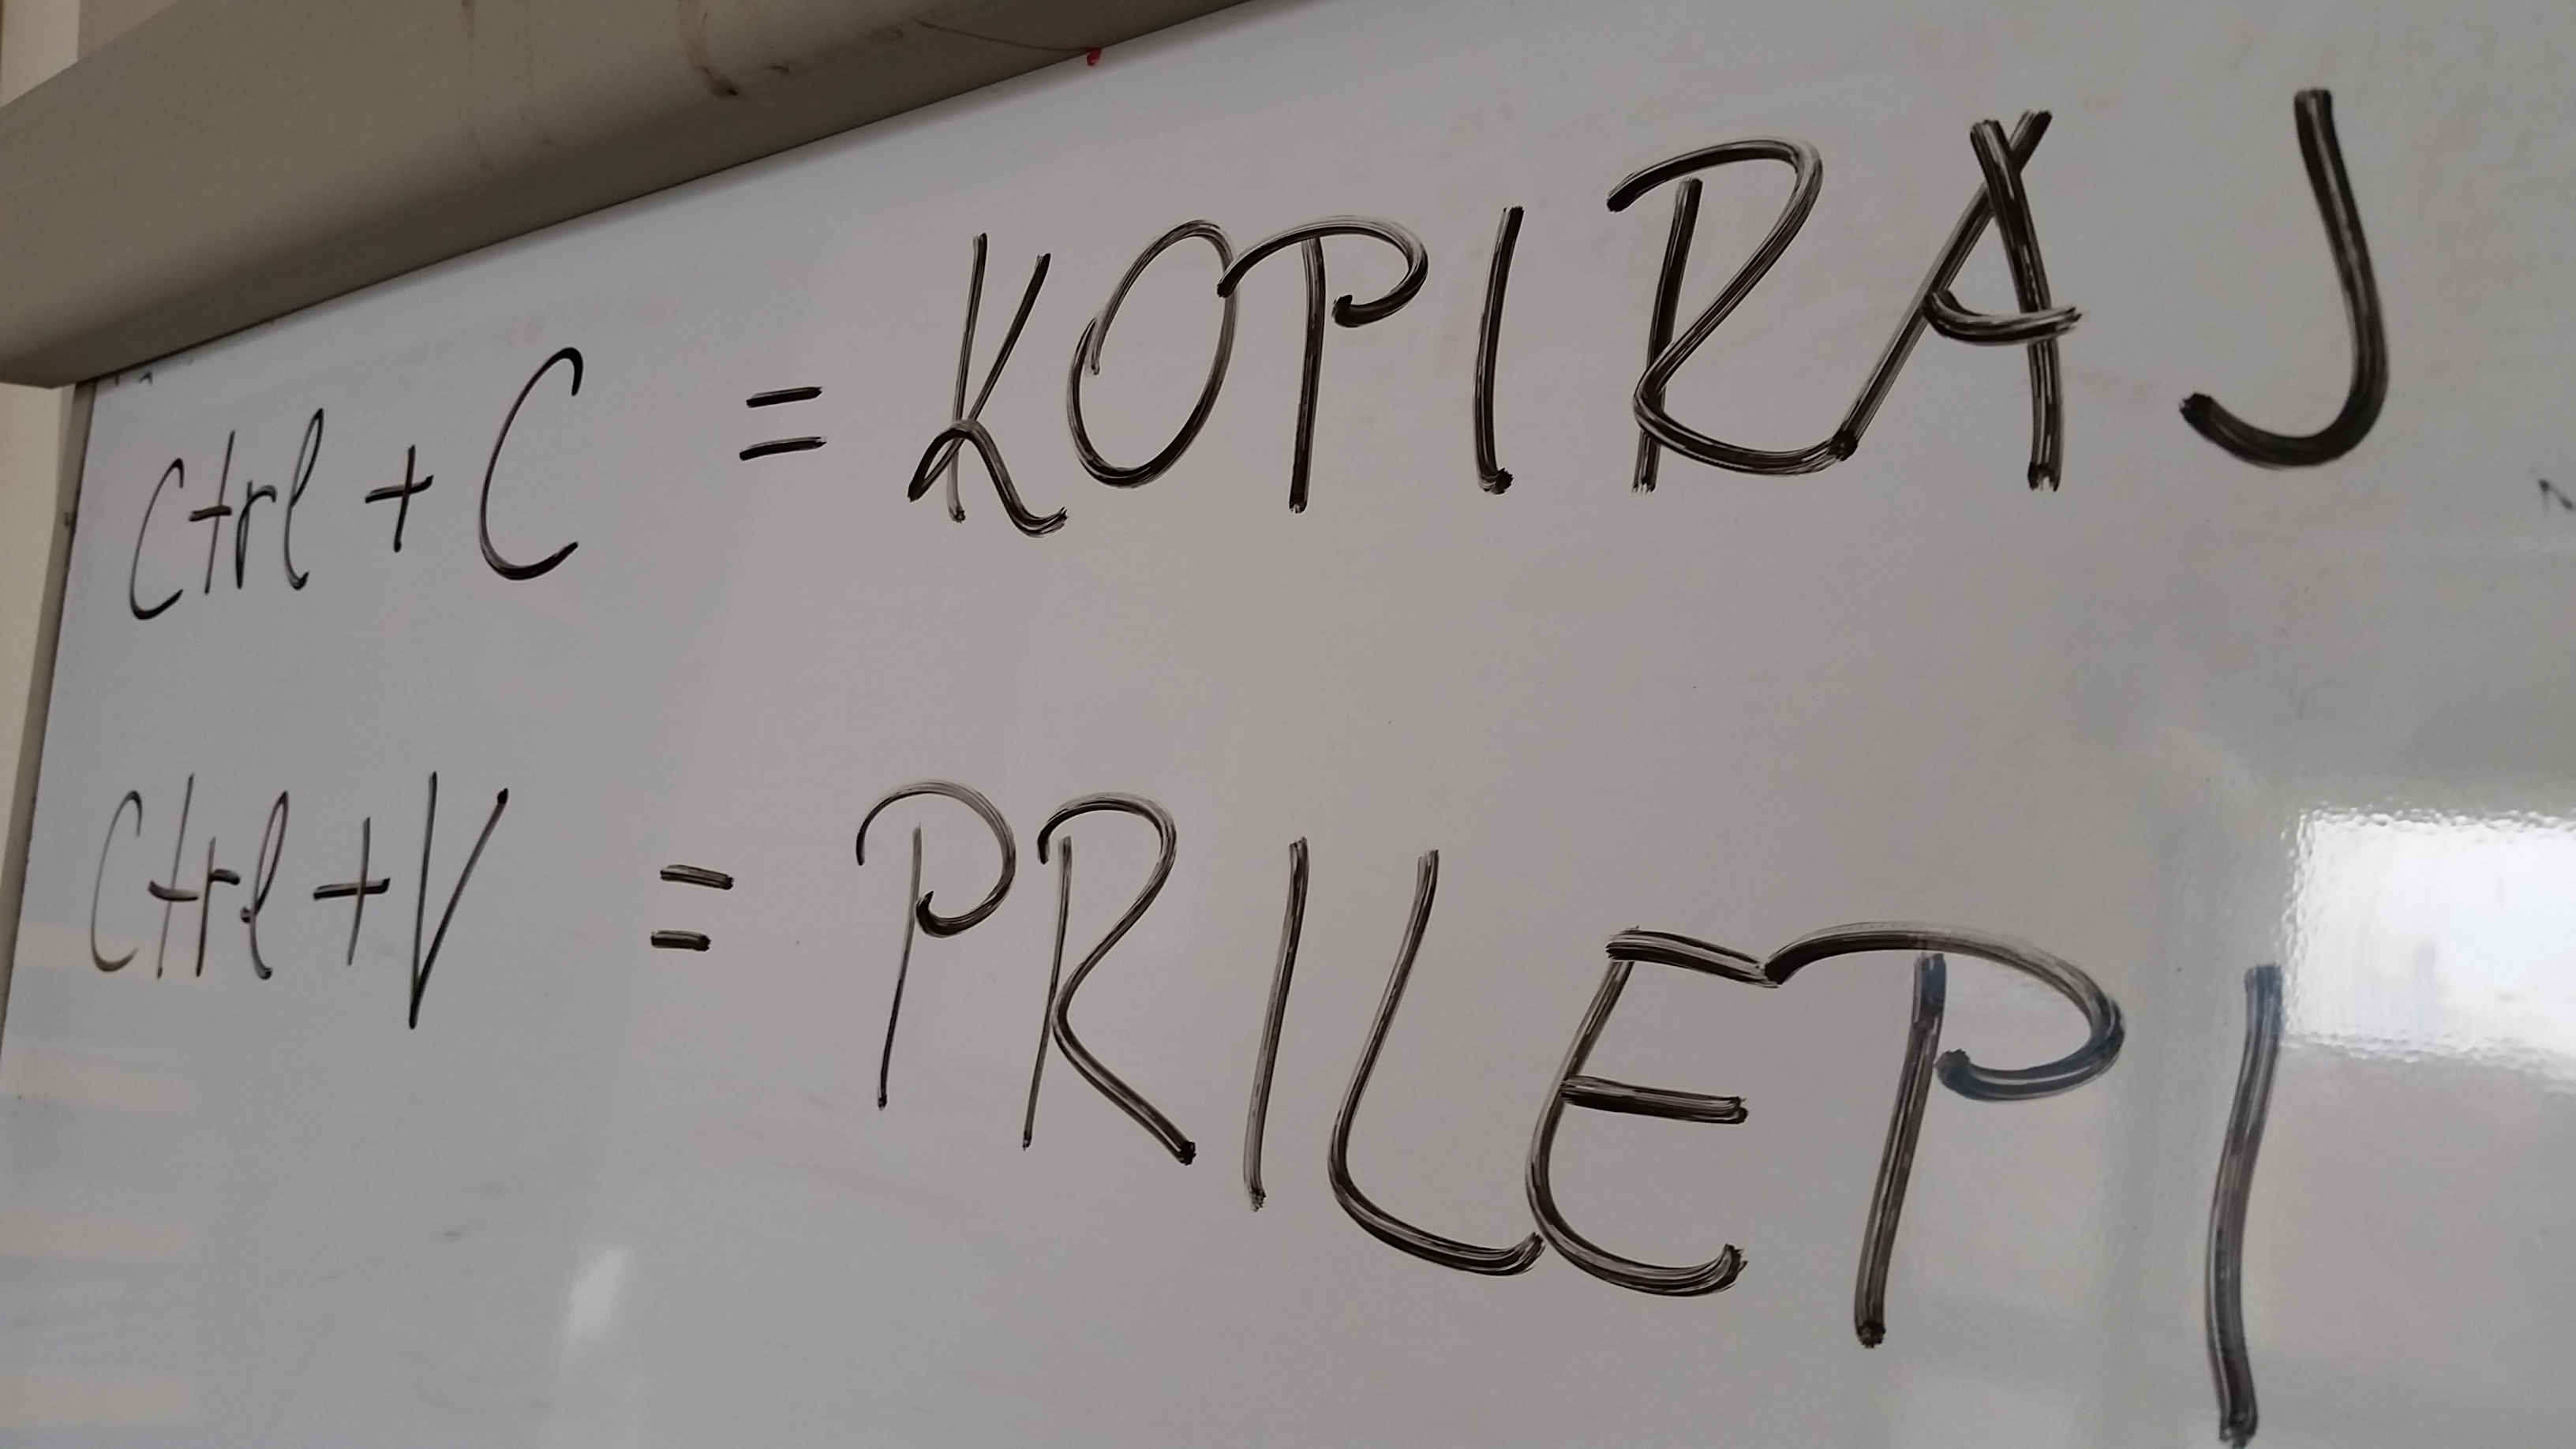 Ctrl + C = KOPIRAJ
Ctrl + V = PRILEPI